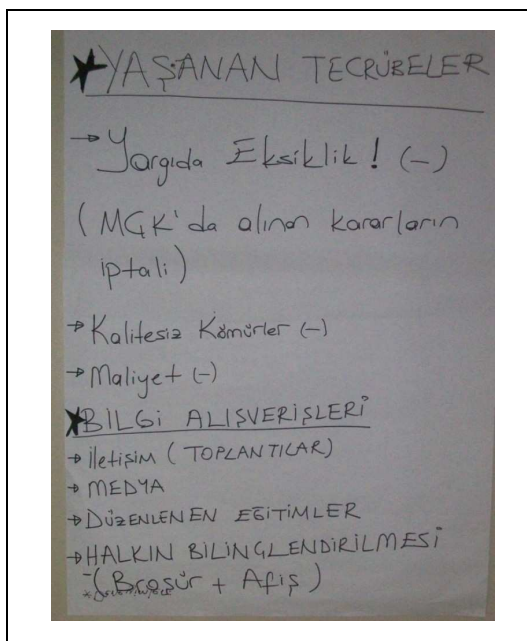 ★YAŞANAN TECRÜBELER
→ Yargıda Eksiklik! (-)
(MGK'da alınan kararların
iptali)
→ Kalitesiz Kömürler (-)
→ Maliyet (-)
★BİLGİ ALIŞVERİŞLERİ
→ İletişim (TOPLANTILAR)
→ MEDYA
→ DÜZENLENEN EĞİTİMLER
→ HALKIN BİLİNÇLENDİRİLMESİ
(Broşür + Afiş)